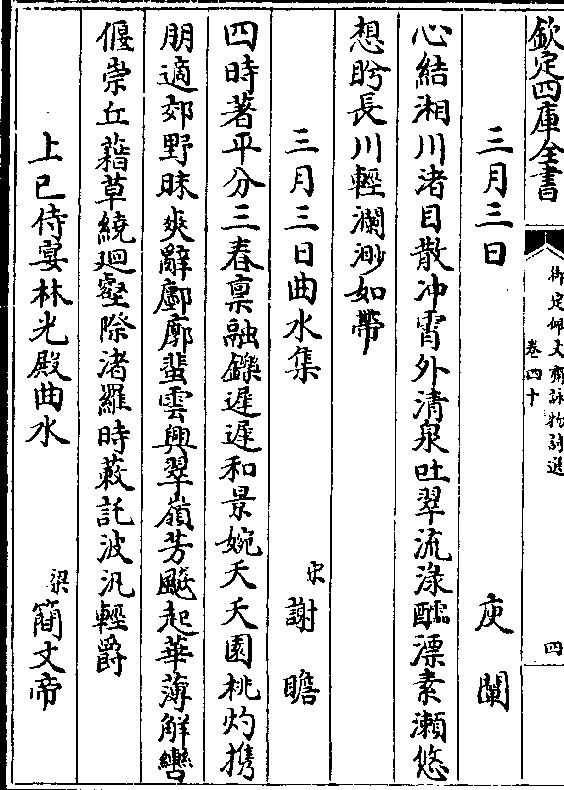 欽定四庫全書
御定佩文齋詠物詩選
卷四十
四
三月三日
庾闡
心結湘川渚目散冲霄外清泉吐翠流淥醽漂素瀨悠
想盻長川輕瀾渺如帶
三月三日曲水集
宋
謝瞻
四時著平分三春稟融鑠遲遲和景婉夭夭園桃灼攜
朋適郊野昧爽辭鄽廓蜚雲興翠嶺芳飇起華薄解轡
偃崇丘藉草繞迴壑際渚羅時蔌託波汎輕爵
上巳侍宴林光殿曲水
梁
簡文帝